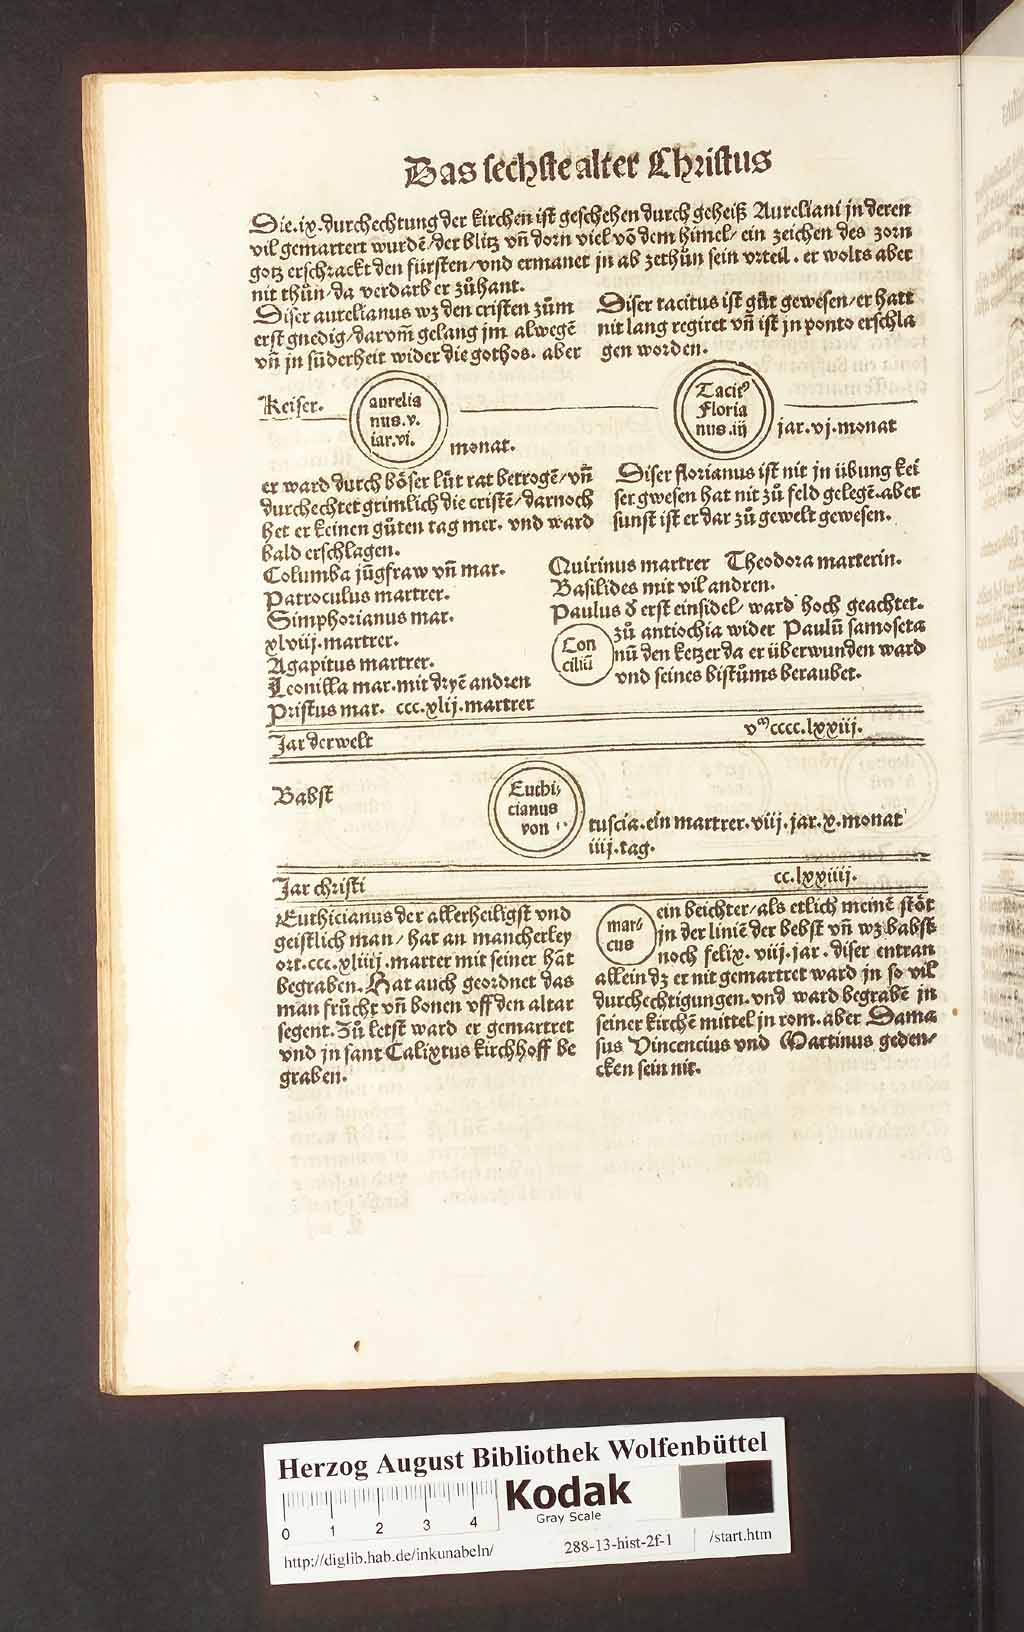 Das sechste alter Christus
Die .ix. durchechtung der kirchen ist geschehen durch geheiß Aureliani jn deren
vil gemartert wurdẽ/ der blitz vñ dorn viel võ dem himel/ ein zeichen des zorn
gotz erschrackt den fürsten/ vnd ermanet jn ab zethůn sein vrteil. er wolts aber
nit thůn/ da verdarb er zůhant.
Diser aurelianus wz den cristen zům
erst gnedig/ darvm̃ gelang jm alwegẽ
vñ jn sũderheit wider die gothos. aber
Diser tacitus ist gůt gewesen/ er hatt
nit lang regiret vñ ist jn ponto erschla
gen worden.
Keiser.
aurelia
nus.v.
iar.vi.
monat.
Taciꝰ
Floria
nus.iij
jar.vj.monat
er ward durch bőser lüt rat betrogẽ/ vñ
durchechtet grimlich die cristẽ/ darnoch
het er keinen gůten tag mer. vnd ward
bald erschlagen.
Diser florianus ist nit jn übung kei
ser gwesen hat nit zů feld gelegẽ. aber
sunst ist er dar zů gewelt gewesen.
Columba jũgfraw vñ mar.
Patroculus martrer.
Simphorianus mar.
xlviij. martrer.
Agapitus martrer.
Leonilla mar. mit dryẽ andren
Pristus mar. ccc.xlij. martrer
Quirinus martrer Theodora marterin.
Basilides mit vil andren.
Paulus ď erst einsidel/ ward hoch geachtet.
Con
ciliũ
zů antiochia wider Paulũ samoseta
nũ den ketzer da er überwunden ward
vnd seines bistůms beraubet.
Jar der welt
vᵐcccc.lxxiij.
Babst
Euthi-
cianus
von
tuscia. ein martrer. viij. jar. x. monat
iiij. tag.
Jar christi
cc.lxxiiij.
Euthicianus der allerheiligst vnd
geistlich man/ hat an mancherley
ort. ccc.xliiij. marter mit seiner hãt
begraben. Hat auch geordnet das
man frůcht vñ bonen vff den altar
segent. Zů letst ward er gemartret
vnd jn sant Calixtus kirchhoff be
graben.
mar-
cus
ein beichter/ als etlich meinẽ stőt
jn der liniẽ der bebst vñ wz babst
noch felix. viij. jar. diser entran
allein dz er nit gemartret ward jn so vil
durchechtigungen. vnd ward begrabẽ jn
seiner kirchẽ mittel jn rom. aber Dama
sus Vincencius vnd Martinus geden-
cken sein nit.
Herzog August Bibliothek Wolfenbüttel
0 1 2 3 4
Kodak
Gray Scale
http://diglib.hab.de/inkunabeln/
288-13-hist-2f-1
/start.htm